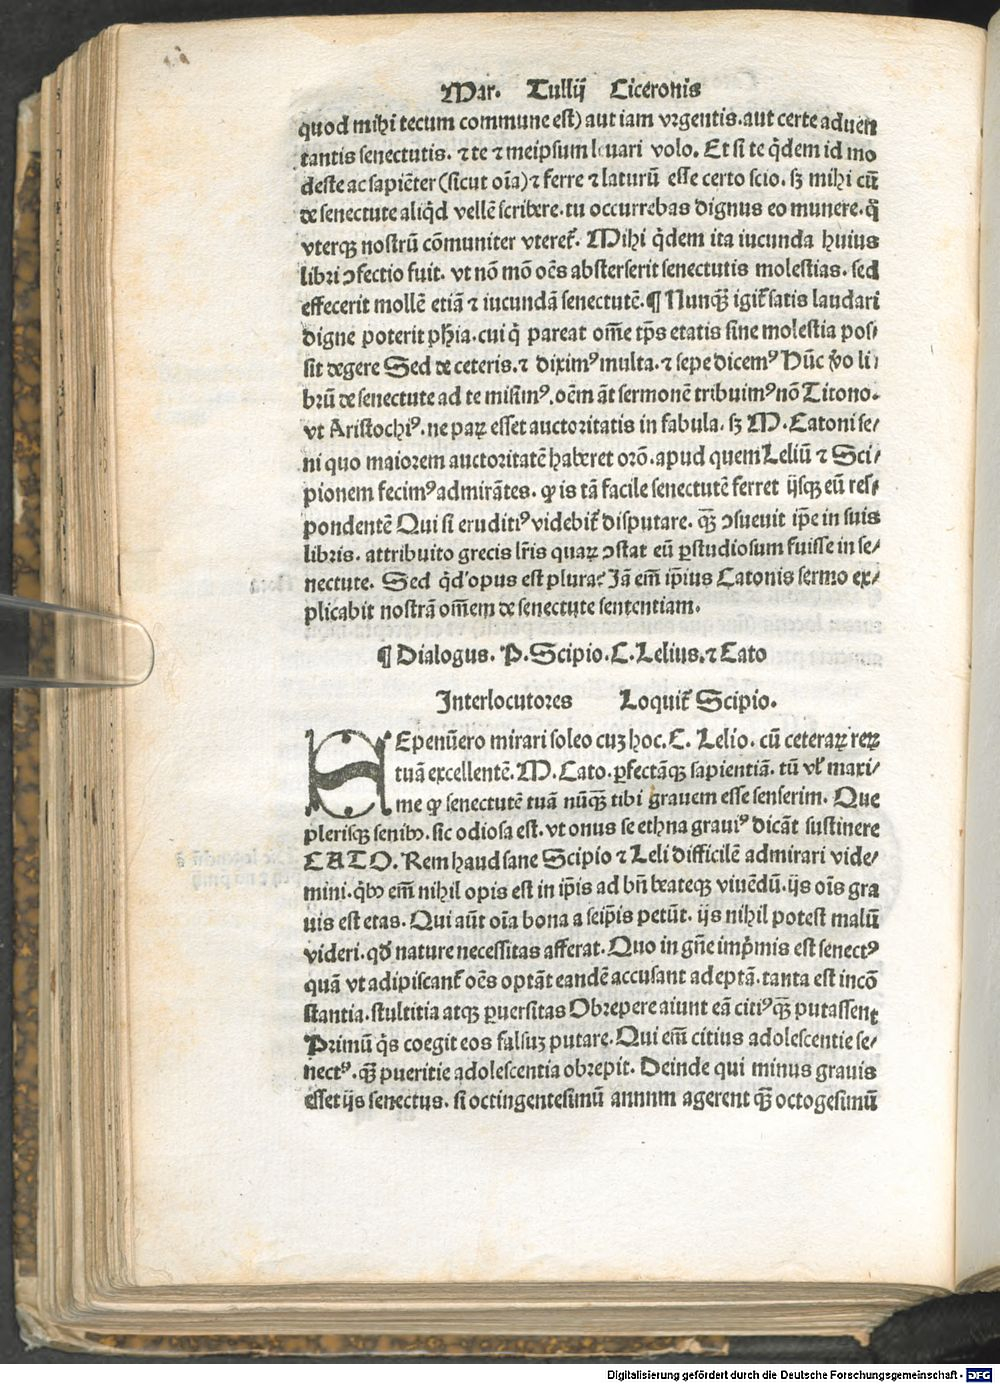 Mar. Tullij Ciceronis
quod mihi tecum commune est) aut iam vrgentis.aut certe aduen
tantis senectutis. ⁊ te ⁊ meipsum l uari volo. Et si te q̇dem id mo
deste ac sapiēter (sicut oīa) ⁊ ferre ⁊ laturū esse certo scio. sꝫ mihi cū
de senectute aliq̇d vellē scribere. tu occurrebas dignus eo munere. q̄
vterqꝫ nostrū cōmuniter vteret᷑. Mihi q̇dem ita iucunda huius
libri ↄfectio fuit. vt nō mō oēs absterserit senectutis molestias. sed
effecerit mollē etiā ⁊ iucundā senectutē. ¶ Nunqꝫ̄ igit᷑ satis laudari
digne poterit pħia. cui q̇ pareat om̄e tp̄s etatis sine molestia pos/
sit degere Sed de ceteris. ⁊ diximꝰ multa. ⁊ sepe dicemꝰ Hūc v̊o li/
brū de senectute ad te misimꝰ. oēm āt sermonē tribuimꝰ nō Titono.
vt Aristochiꝰ. ne paꝝ esset auctoritatis in fabula. sꝫ M. Catoni se/
ni quo maiorem auctoritatē haberet orō. apud quem Leliū ⁊ Sci/
pionem fecimꝰ admirātes. ꝙ is tā facile senectutē ferret ijsqꝫ eū res/
pondentē Qui si eruditiꝰ videbit᷑ disputare. qꝫ̄ ↄsueuit ip̄e in suis
libris. attribuito grecis lr̄is quaꝝ ↄstat eū ꝑstudiosum fuisse in se/
nectute. Sed q̇d opus est plura? Jā em̄ ip̄ius Catonis sermo ex/
plicabit nostrā om̄em de senectute sententiam.
¶ Dialogus. P. Scipio. C. Lelius. ⁊ Cato
Interlocutores Loquit᷑ Scipio.
SEpenūero mirari soleo cuꝫ hoc. C. Lelio. cū ceteraꝝ reꝝ
tuā excellentē. M. Cato. ꝑfectāqꝫ sapientiā. tū vl᷑ maxi/
me ꝙ senectutē tuā nūqꝫ̄ tibi grauem esse senserim. Que
plerisqꝫ senibꝫ. sic odiosa est. vt onus se ethna grauiꝰ dicāt sustinere
CATO. Rem haud sane Scipio ⁊ Leli difficilē admirari vide/
mini. q̇bꝫ em̄ nihil opis est in ip̄is ad bn̄ beateqꝫ viuēdū. ijs oīs gra
uis est etas. Qui aūt oīa bona a seip̄is petūt. ijs nihil potest malū
videri. qđ nature necessitas afferat. Quo in gn̄e imp̄mis est senectꝰ
quā vt adipiscant᷑ oēs optāt eandē accusant adeptā. tanta est incō
stantia. stultitia atqꝫ ꝑuersitas Obrepere aiunt eā citiꝰ qꝫ̄ putassent
Primū q̇s coegit eos falsuꝫ putare. Qui em̄ citius adolescentie se/
nectꝰ. qꝫ̄ pueritie adolescentia obrepit. Deinde qui minus grauis
esset ijs senectus. si octingentesimū annnm agerent qꝫ̄ octogesimū
Digitalisierung gefördert durch die Deutsche Forschungsgemeinschaft - DFG